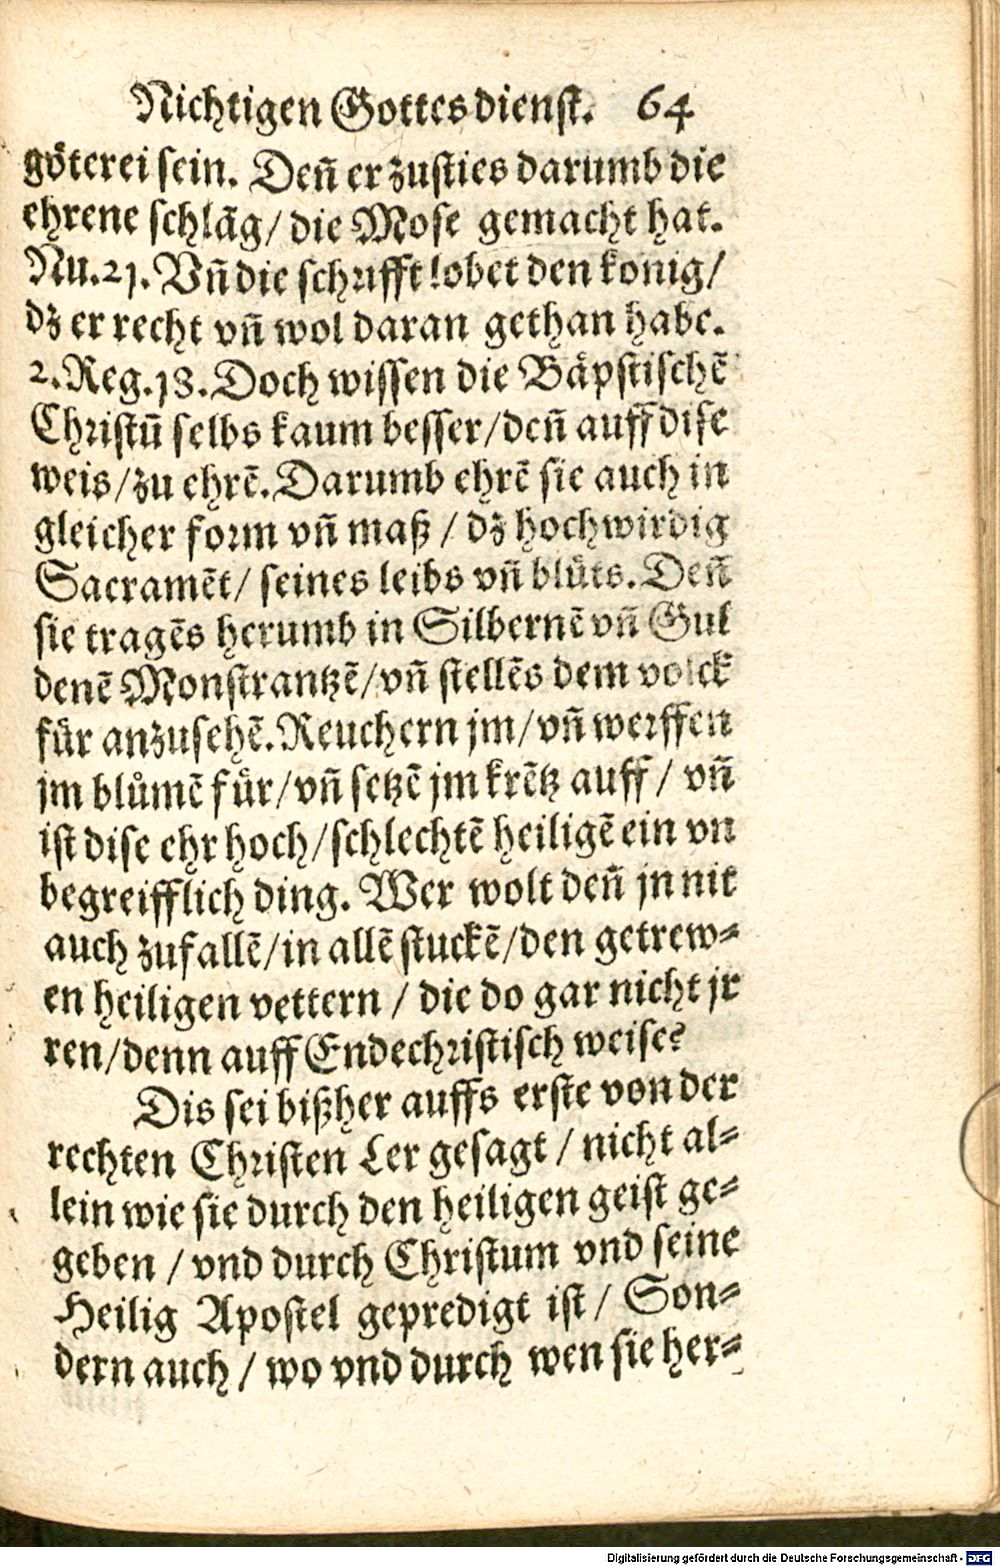 Nichtigen Gottes dienst. 64
göterei sein. Deñ er zusties darumb die
ehrene schlãg/ die Mose gemacht hat.
Nu.21. Vñ die schrifft lobet den konig/
dz er recht vñ wol daran gethan habe.
2. Reg. 18. Doch wissen die Bäpstischẽ
Christũ selbs kaum besser/deñ auff dise
weis/zu ehrẽ. Darumb ehrẽ sie auch in
gleicher form vñ maß / dz hochwirdig
Sacramẽt/ seines leibs vñ blůts. Deñ
sie tragẽs herumb in Silbernẽ vñ Gul
denẽ Monstrantzẽ/vñ stellẽs dem volck
für anzusehẽ. Reuchern jm/vñ werffen
jm blůmẽ für/vñ setzẽ jm krẽtz auff/ vñ
ist dise ehr hoch/schlechtẽ heiligẽ ein vn
begreifflich ding. Wer wolt deñ jn nit
auch zufallẽ/in allẽ stuckẽ/den getrew⸗
en heiligen vettern / die do gar nicht jr
ren/denn auff Endechristisch weise?
Dis sei bißher auffs erste von der
rechten Christen Ler gesagt / nicht al⸗
lein wie sie durch den heiligen geist ge⸗
geben / vnd durch Christum vnd seine
Heilig Apostel gepredigt ist/ Son⸗
dern auch / wo vnd durch wen sie her⸗
Digitalisierung gefördert durch die Deutsche Forschungsgemeinschaft - DFG